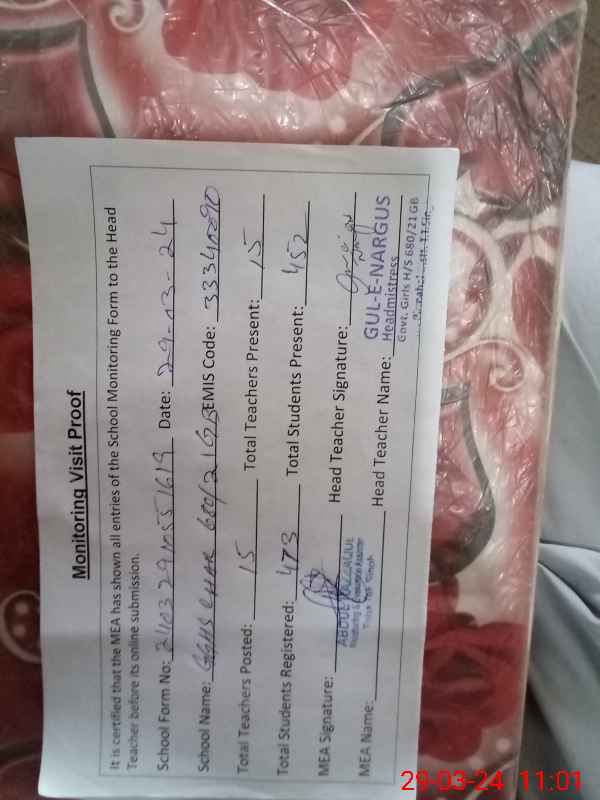 Monitoring Visit Proof
It is certified that the MEA has shown all entries of the School Monitoring Form to the Head
Teacher before its online submission.
School Form No: Date: 29-03-24
School Name: GGHS CHAK 680/21GB EMIS Code:
Total Teachers Posted: 15 Total Teachers Present: 15
Total Students Registered: 473 Total Students Present: 452
MEA Signature: Head Teacher Signature:
ABDUL RAZZAQUL
Monitoring & Evaluation Assistant
GUL-E-NARGUS
Headmistress
MEA Name: Head Teacher Name:
Govt. Girls H/S 680/21GB
29-03-24 11:01